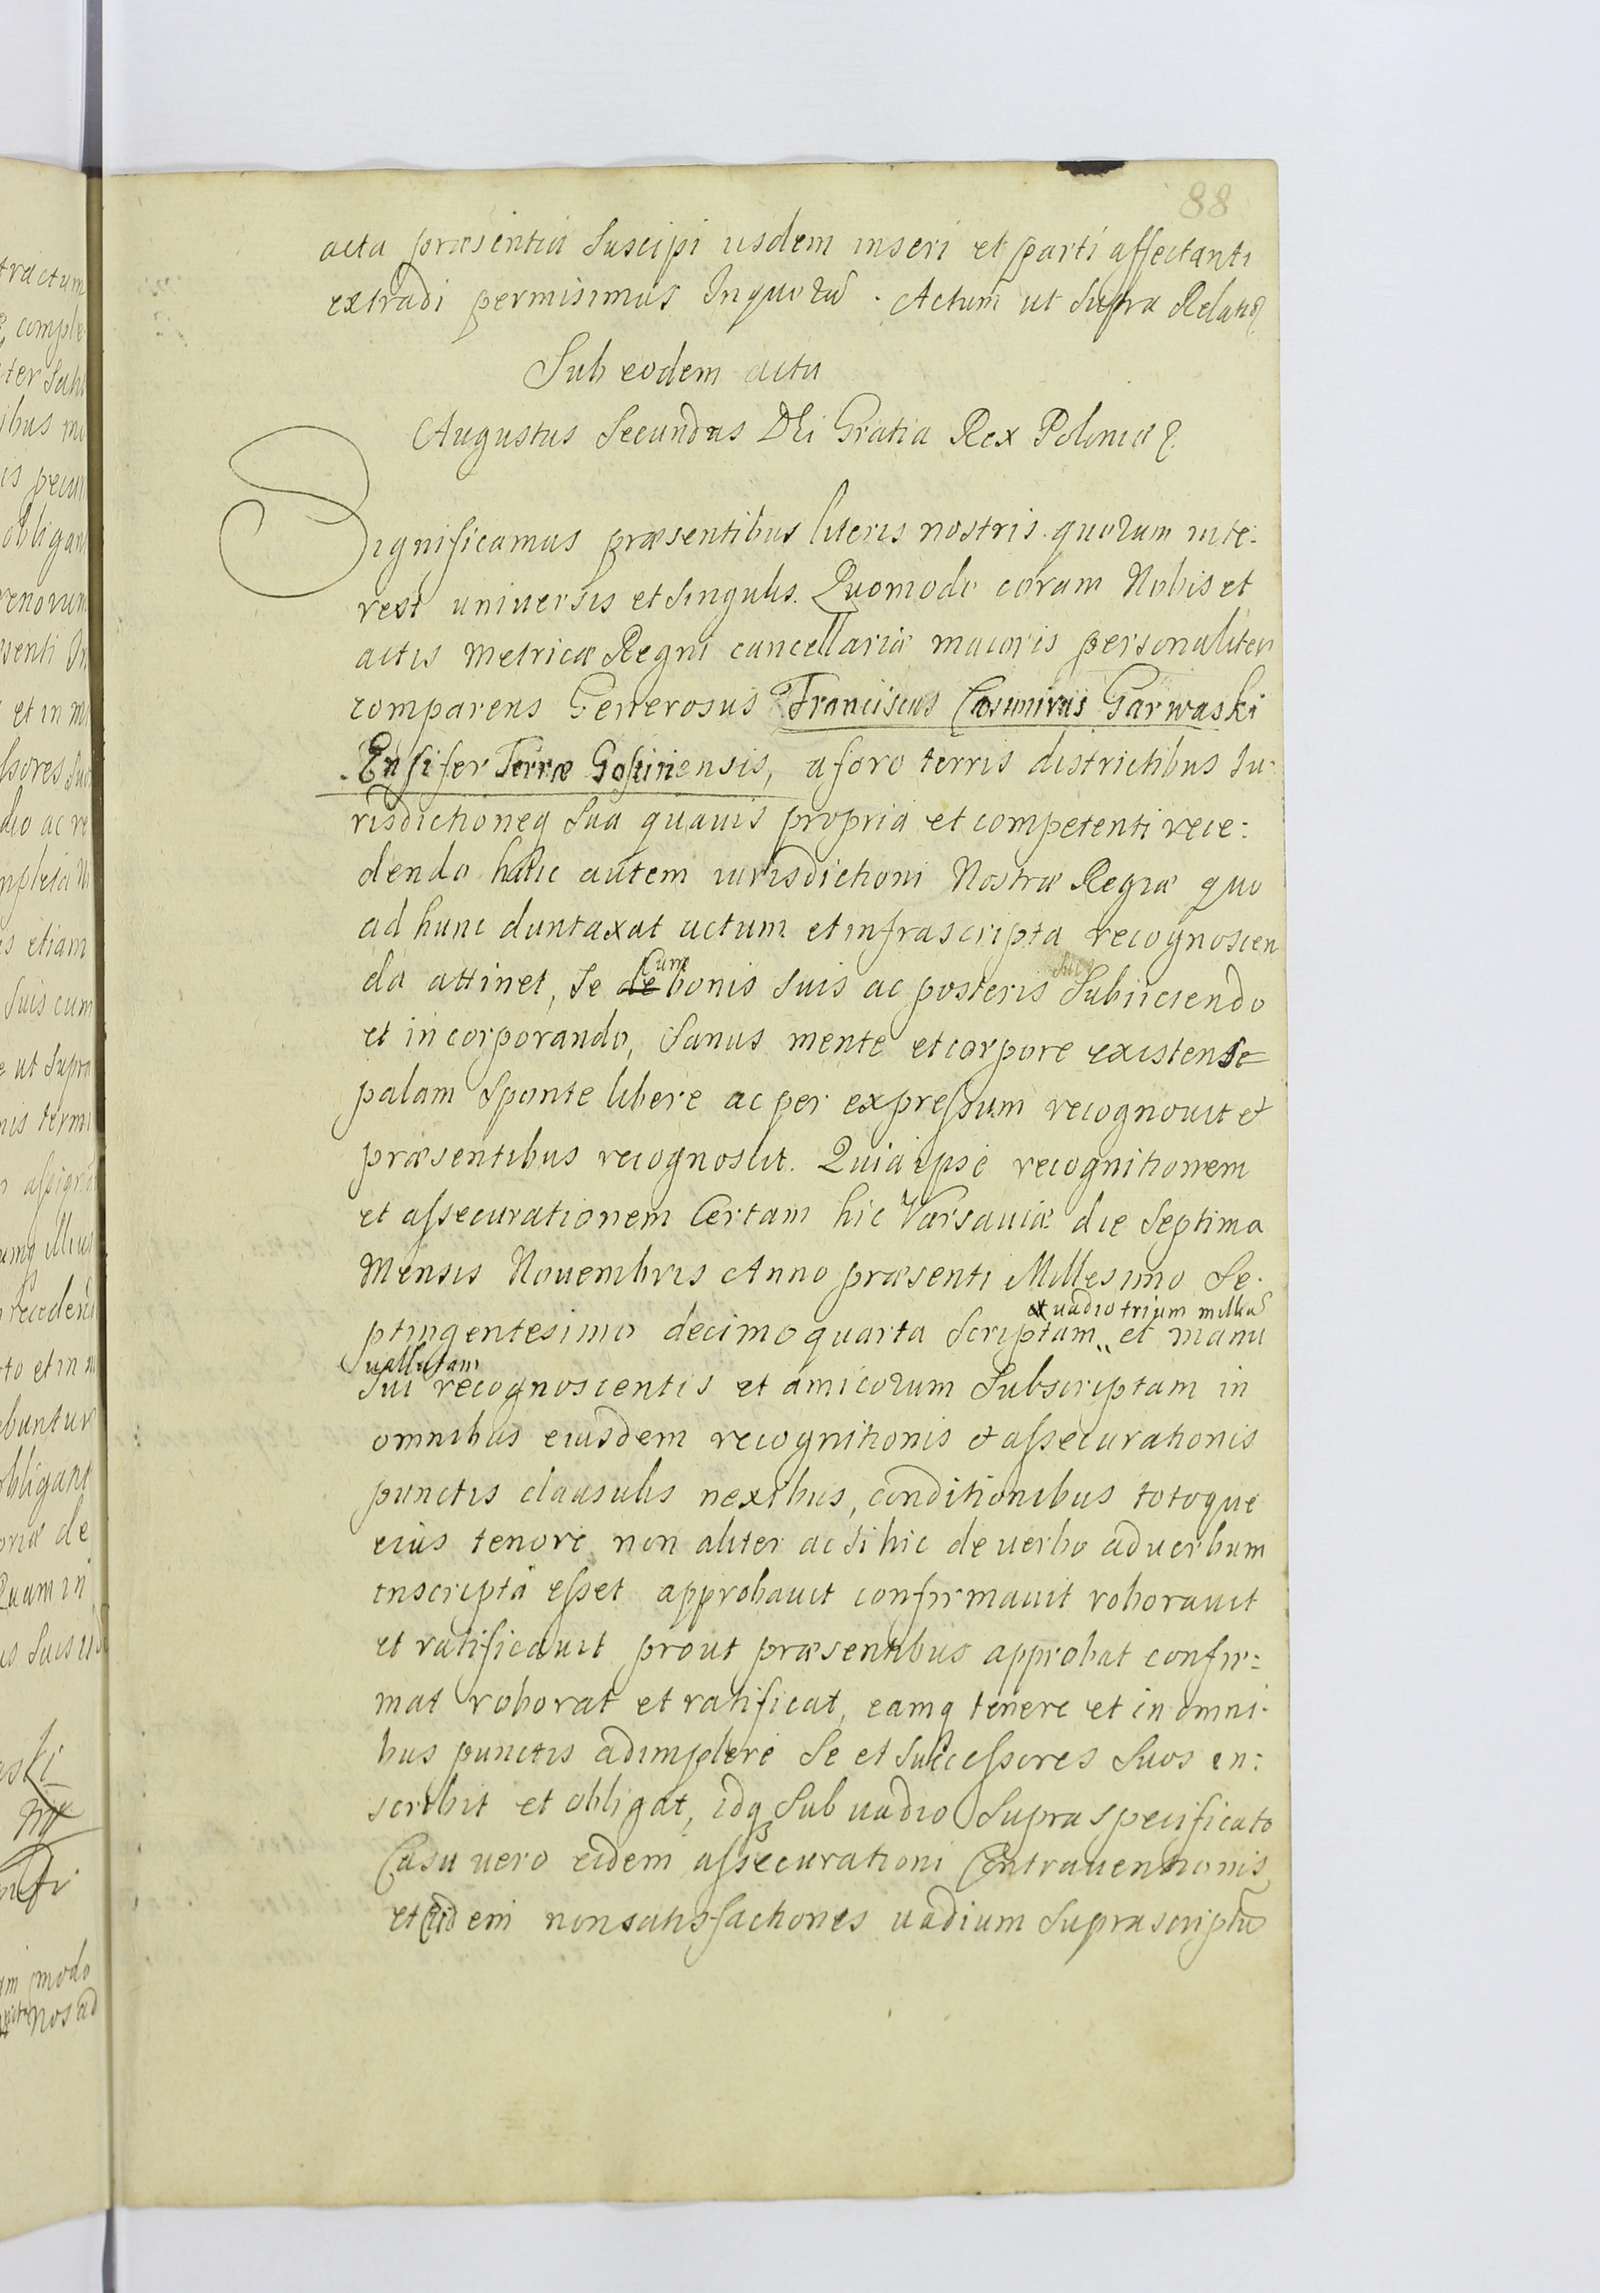 88
acta præsentia Suscipi iisdem inseri et parti affectanti
extradi permisimus Inquorũ. Actum ut Supra Relatio
Sub eodem actu
Augustus Secundus DEi Gratia Rex Poloniæ
Significamus præsentibus literis nostris quorum inte:
rest universis et Singulis. Quomodo coram Nobis et
actis Metricæ Regni cancellariæ maioris personaliter
comparens Generosus Franciscus Casimirus Garwaski
Ensifer Terræ Gostinensis, a foro terris districtibus Iu:
risdictioneq Sua quauis propria et competenti rece:
dendo huic autem iurisdictioni Nostræ Regiæ quo
ad hunc duntaxat actum et infrascripta recognoscen
da attinet, Se de Cum bonis Suis ac posteris Suis Subiiciendo
et incorporando, Sanus mente et corpore existens
palam Sponte libere ac per expressum recognouit et
præsentibus recognoscit. Quia ipse recognitionem
et assecurationem Certam hic Varsauiæ die Septima
Mensis Nouembris Anno præsenti Millesimo Se.
et uadio trium milliũ
ptingentesimo decimo quarta Scriptam „ et manu
uallatam
Sui recognoscentis et amicorum Subscriptam in
omnibus eiusdem recognitionis et assecurationis
punctis clausulis nexibus, conditionibus totoque
eius tenore non aliter ac Si hic de uerbo ad uerbum
inscripta esset approbauit confirmauit roborauit
et ratificauit prout præsentibus approbat confir:
mat roborat et ratificat, eamq tenere et in omni.
bus punctis adimplere Se et Successores Suos in:
scribit et obligat, idq Sub uadio Supra specificato
Casu uero eidem assecurationi Contrauentionis
et eidem non satisfactiones uadium Suprascriptũ